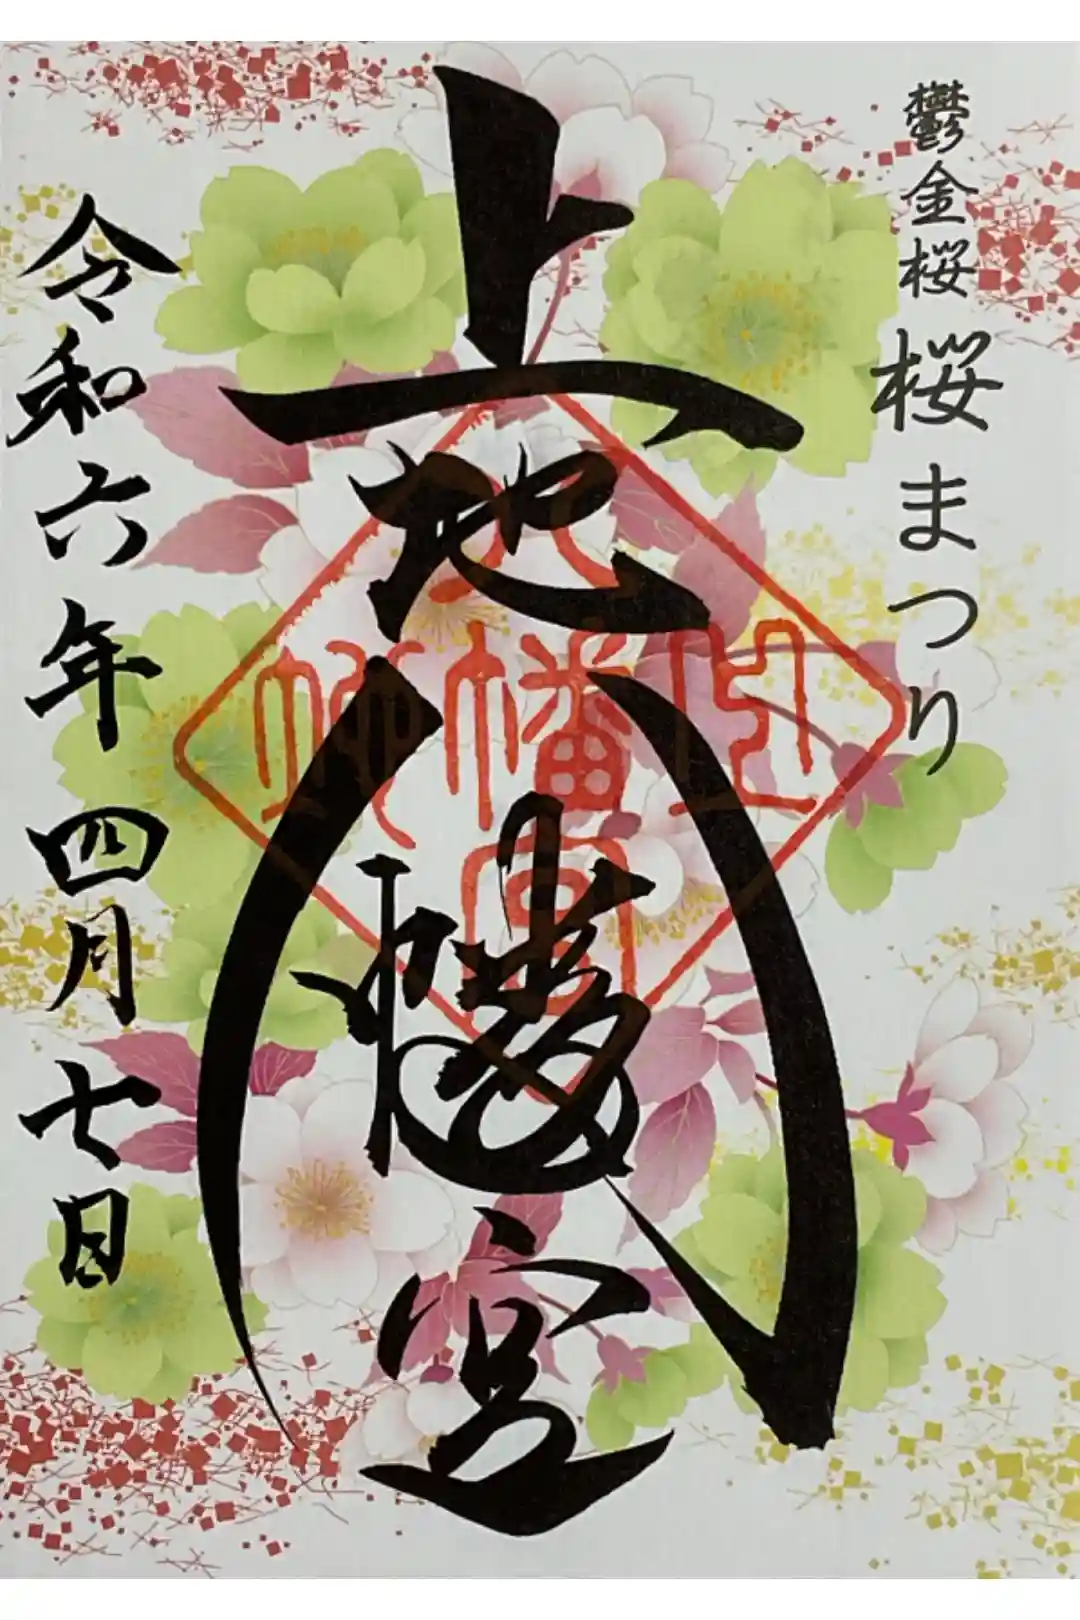 鬱金桜 桜まつり
上地八幡宮
上地
八幡宮
神社
令和六年四月七日